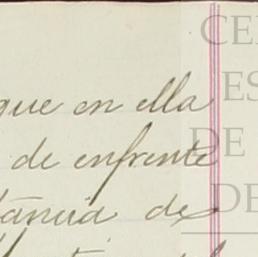 que en ella
de enfrente
tancia de
CE
ES
DE
DE